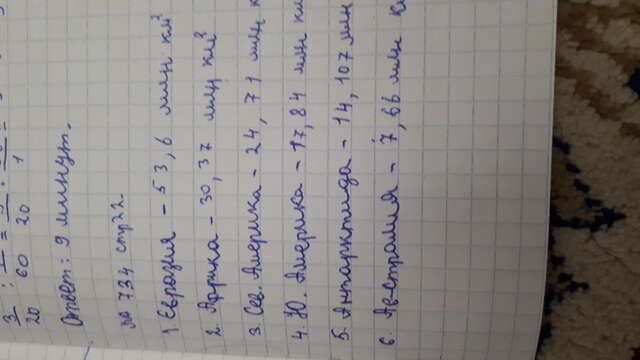 3/20 : 60 20 1
Ответ: 9 минут.
№ 734 стр 22.
1. Евразия - 53,6 млн км²
2. Африка - 30,37 млн км²
3. Сев. Америка - 24,71 млн к
4. Ю. Америка - 17,84 млн км
5. Антарктида - 14,107 млн
6. Австралия - 7,66 млн к